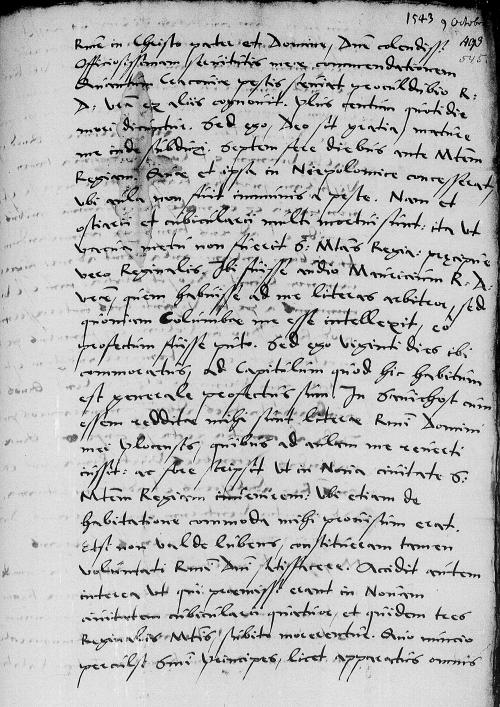 1543 9 Octobr
Rme in Christo pater et Domine, Dne colendiss.
Officiosissimam servitutis mee commendationem
Quantum Cracoviae pestis seviat proculdubio R.
D. Vra ex aliis cognovit. Plus centum quotidie
mori dicuntur. Sed ego, Deo sit gratia, mature
me inde subduxi. Septem fere diebus ante Mtem
Regiam. Quae et ipsa in Niepolomice concesserat,
Ubi aula non fuit immunis a peste. Nam et
ostiarii et cubicularii multi mortui sunt: ita ut
vacua metu non fuerit S. Mtas Regia: precipue
vero Reginalis. Ibi fuisse audio Mauricium R. D.
Vre, quem habuisse ad me literas arbitror, sed
quoniam Columbae me esse intellexit, eo
profectum fuisse puto. Sed ego viginti dies ibi
commoratus, ad Capitulum quod hic habitum
est generale profectus sum. In Savichost cum
essem redditae mihi sunt literae Rmi Domini
mei Plocensis quibus ad aulam me reverti
iussit: ac fere scripsit ut in Novia civitate S.
Mtem Regiam invenirem: Ubi etiam de
habitatione commoda mihi provisum erat.
Etsi non valde lubens, constitueram tamen
voluntati Rmi Dni satisfacere. Accidit autem
interea ut qui praemissi erant in Novam
civitatem cubicularii quatuor, et quidem tres
Reginalis Mtis, subito morerentur. Quo nuncio
perculsi Smi Principes, licet apparatus omnis